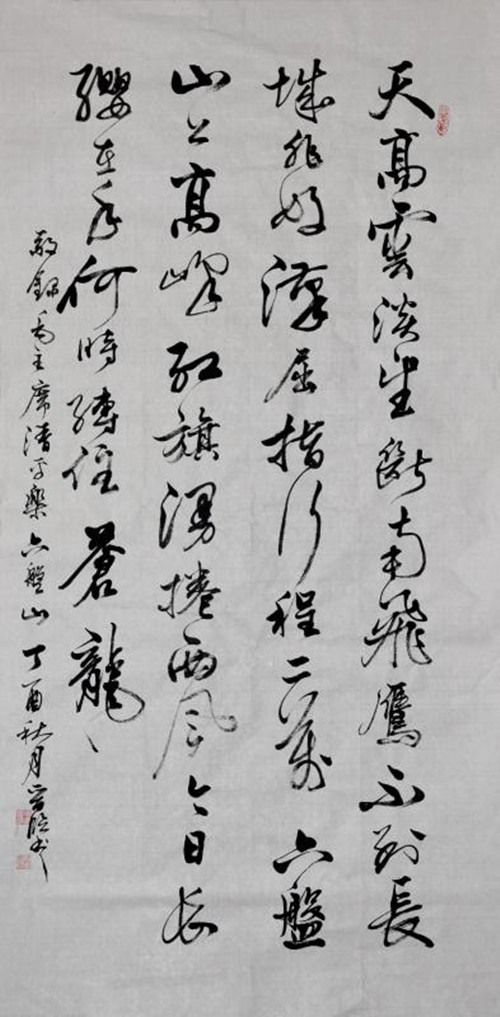 天高雲淡望斷南飛鴈不到長
城非好漢屈指行程二萬六盤
山上高峰紅旗漫捲西風今日長
纓在手何時縛住蒼龍
敬錄毛主席清平樂六盤山丁酉秋月書